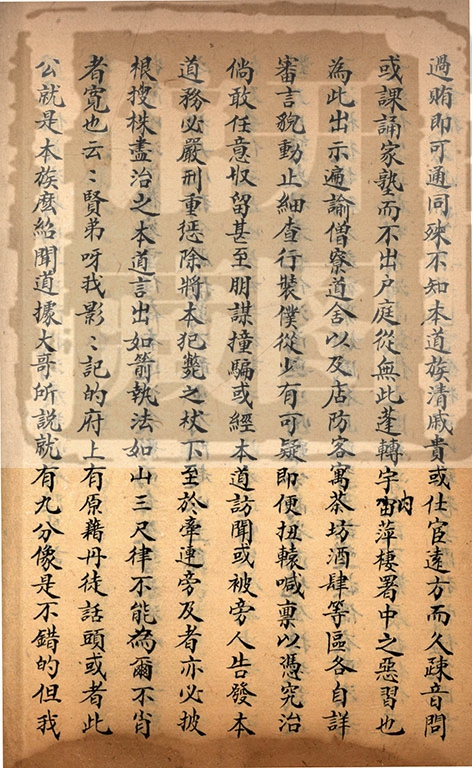 過賄即可通同殊不知本道族清戚貴或仕宦遠方而久疎音問
或課誦家塾而不出户庭從無此蓬轉宇宙内萍棲署中之惡習也
為此出示遍諭僧寮道舍以及店防客寓茶坊酒肆等區各自詳
審言貌動止細查行裝僕從少有可疑即便扭轅喊禀以憑究治
倘敢任意収留甚至朋謀撞騙或經本道訪聞或被旁人告發本
道務必嚴刑重懲除將本犯斃之杖下至於牽連旁及者亦必披
根搜株盡治之本道言出如箭執法如山三尺律不能為爾不肖
者寬也云〻賢弟呀我影〻記的府上有原藉丹徒話頭或者此
公就是本族麽紹聞道據大哥所說就有九分像是不錯的但我